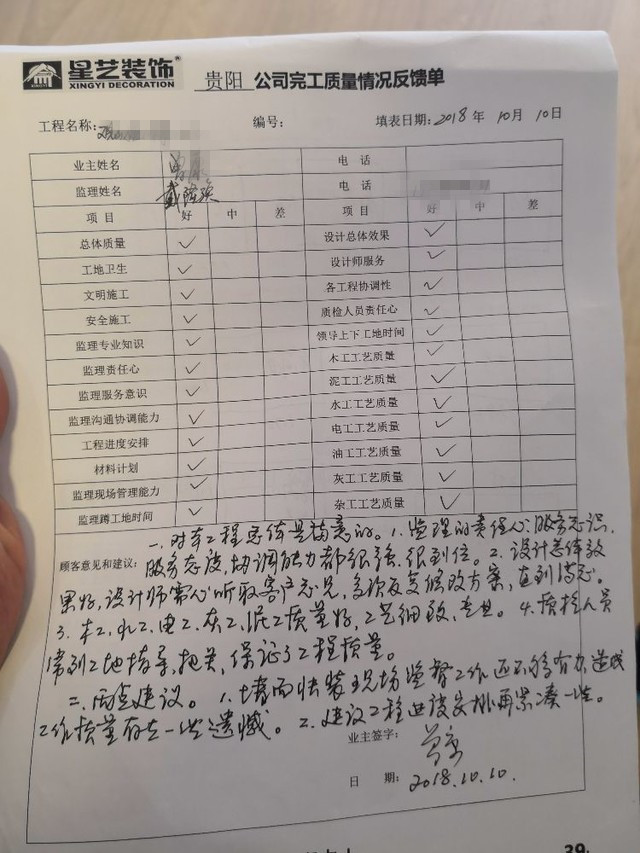 星艺装饰®
XINGYI DECORATION
贵阳 公司完工质量情况反馈单
工程名称: 编号: 填表日期:2018年10月10日
业主姓名 电 话
监理姓名 戴 电 话
项 目 好 中 差 项 目 好 中 差
总体质量 ✓ 设计总体效果 ✓
工地卫生 ✓ 设计师服务 ✓
文明施工 ✓ 各工程协调性 ✓
安全施工 ✓ 质检人员责任心 ✓
监理专业知识 ✓ 领导上下工地时间 ✓
监理责任心 ✓ 木工工艺质量 ✓
监理服务意识 ✓ 泥工工艺质量 ✓
监理沟通协调能力 ✓ 水工工艺质量 ✓
工程进度安排 ✓ 电工工艺质量 ✓
材料计划 ✓ 油工工艺质量 ✓
监理现场管理能力 ✓ 灰工工艺质量 ✓
监理蹲工地时间 ✓ 杂工工艺质量 ✓
一、对本工程总体是满意的。1. 监理的责任心、服务意识、
顾客意见和建议: 服务态度、协调能力都很强、很到位。2. 设计总体效
果好,设计师需心听取客户意见,多次反复修改方案,直到满意。
3. 木工、水工、电工、灰工、泥工质量好,工艺细致、专业。4. 质检人员
常到工地指导、把关,保证了工程质量。
二、两点建议。1. 墙面快装现场监督工作还不够有力,造成
工作质量存在一些遗憾。2. 建议工程进度安排再紧凑一些。
业主签字:
日 期: 2018.10.10.
39